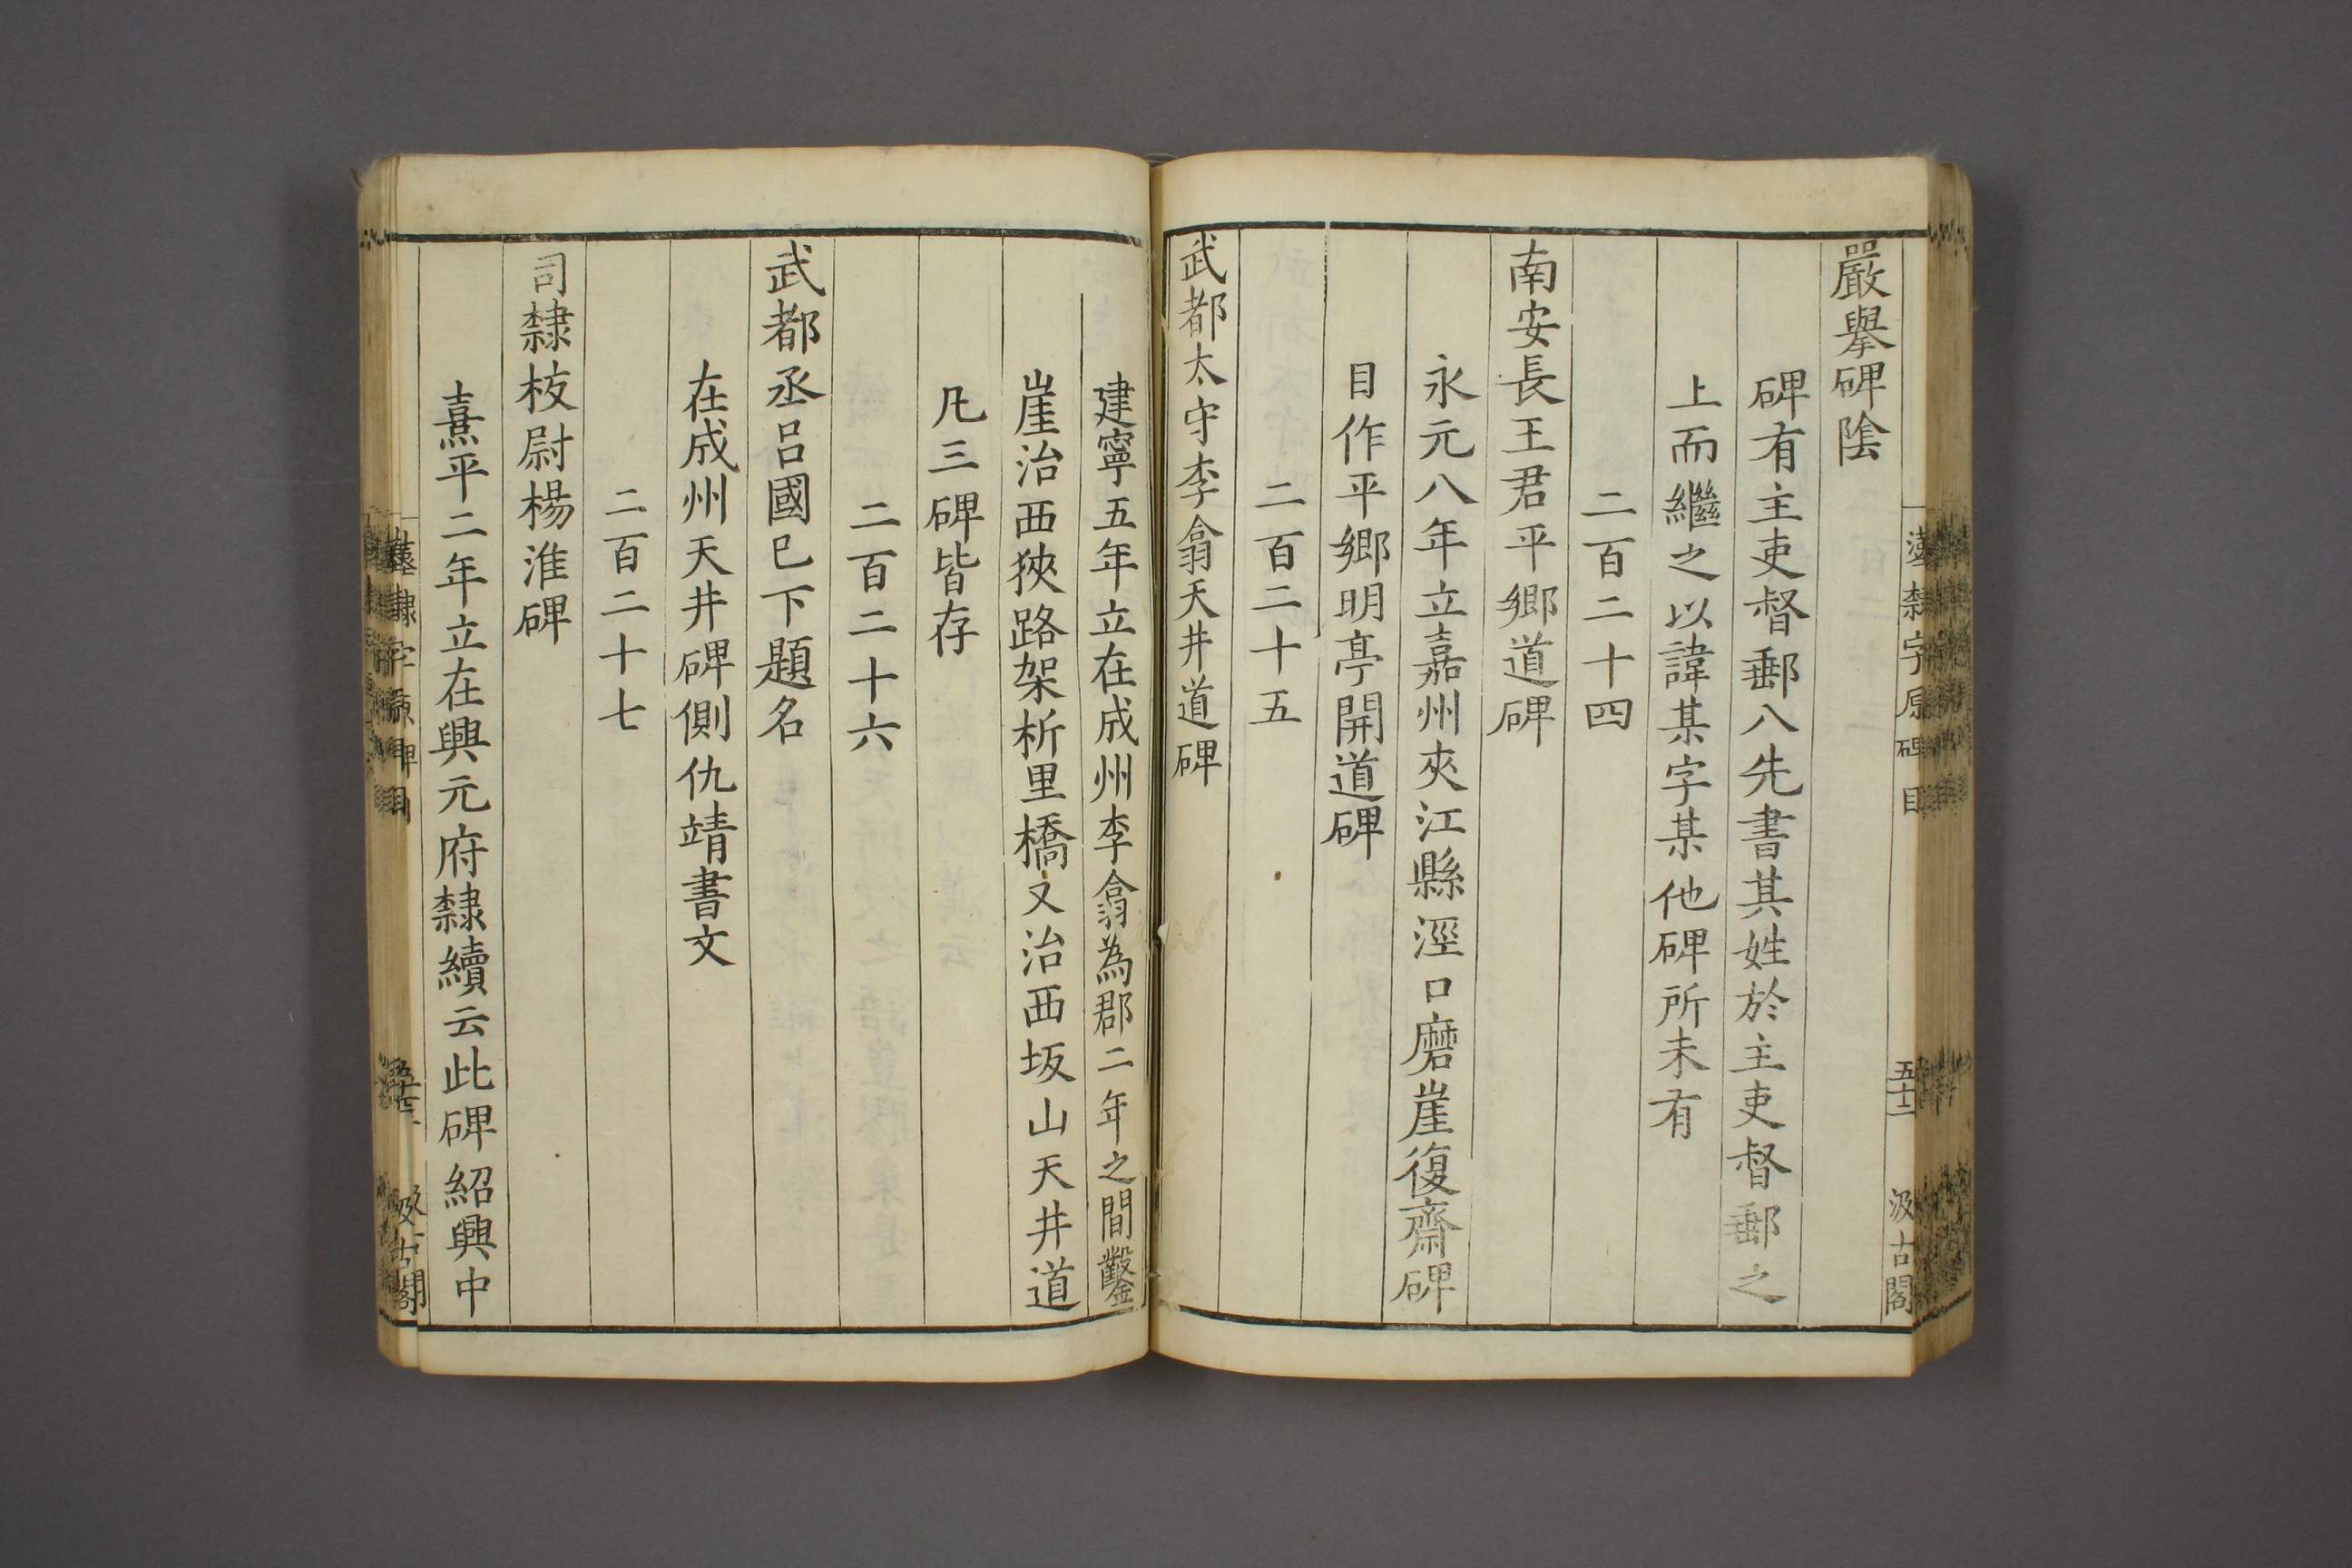 嚴舉碑陰
碑有主吏督郵八先書其姓於主吏督郵之
上而繼之以諱某字某他碑所未有
二百二十四
南安長王君平鄉道碑
永元八年立在嘉州夾江縣涇口磨崖復齋碑
目作平鄉明亭開道碑
二百二十五
武都太守李翕天井道碑
建寧五年立在成州李翕為郡二年之間鑿
崖治西狹路架析里橋又治西坂山天井道
凡三碑皆存
二百二十六
武都丞呂國巳下題名
在成州天井碑側仇靖書文
二百二十七
司隸校尉楊淮碑
熹平二年立在興元府隸續云此碑紹興中
漢隸字原碑目
五十二
汲古閣